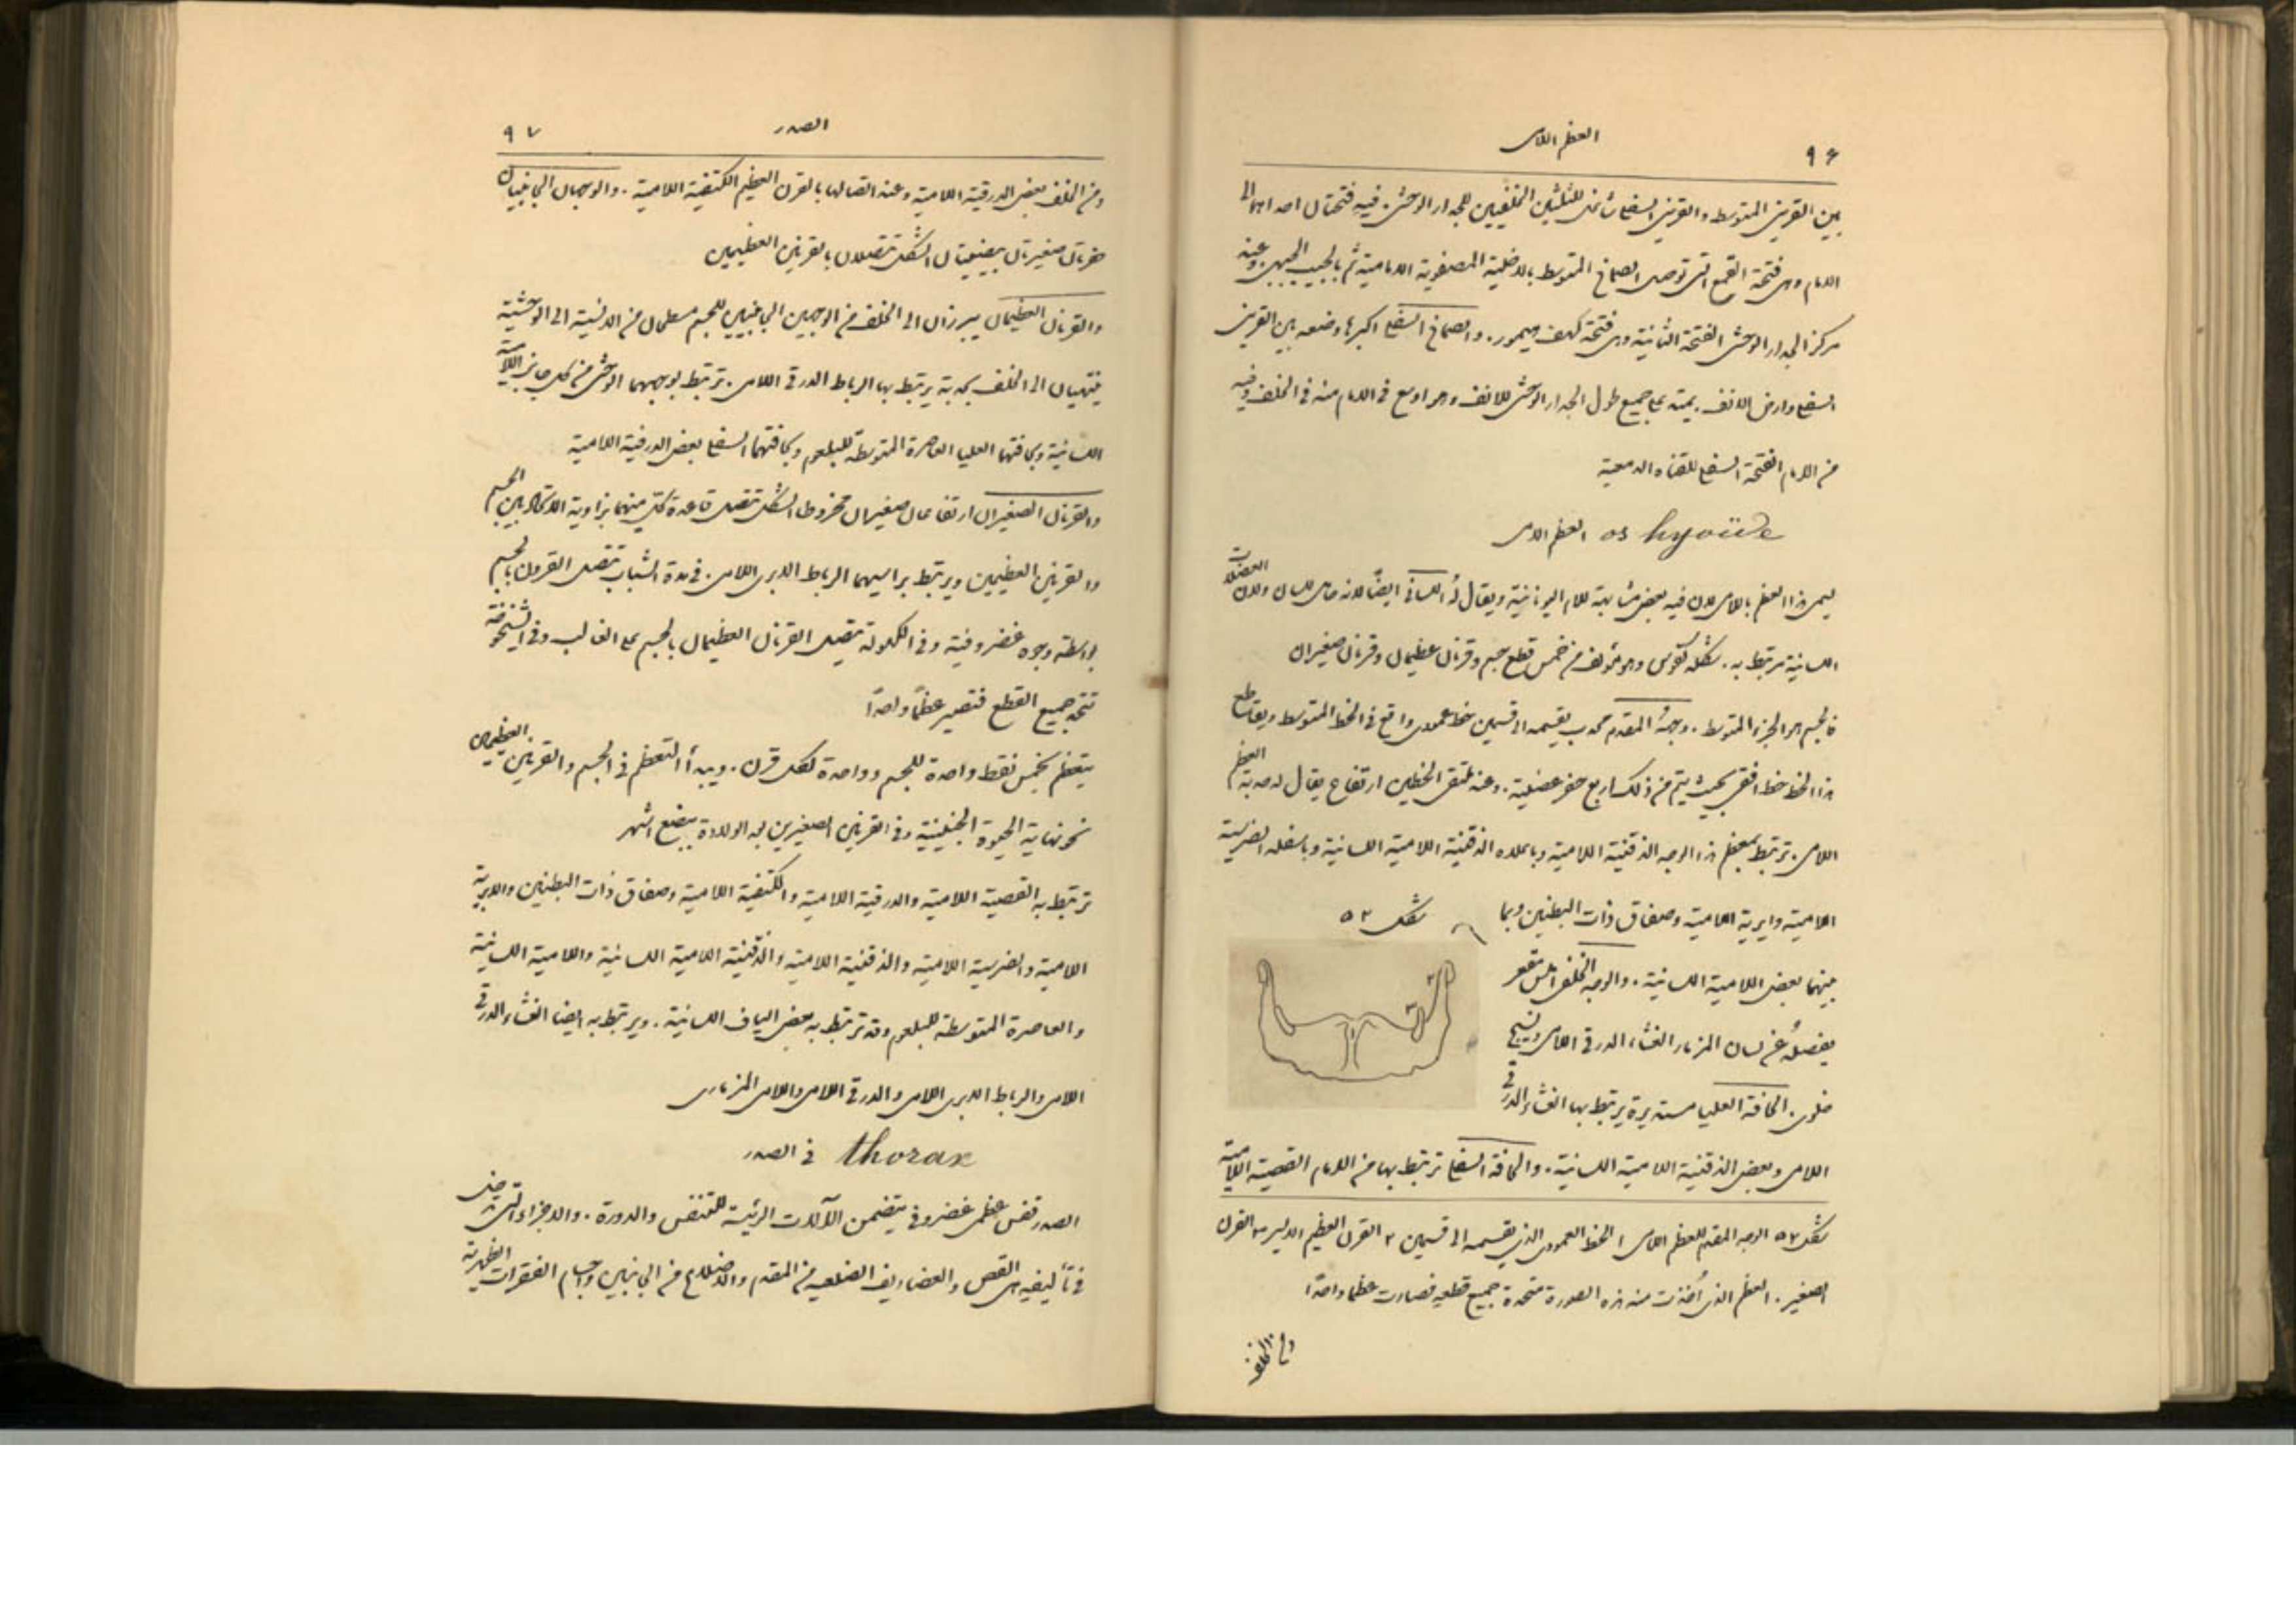 ٩٦
العظم اللامي
بين القرين المتوسط والقرين السفلي شاغل للثلثين الخلفيين للجدار الوحشي. فيه فتحتان احداهما الى
الامام وهي فتحة القمع التي توصل الصماخ المتوسط بالخلية المصفوية الامامية ثم بالجيب الجبهي. وعند
مركز الجدار الوحشي الفتحة الثانية وهي فتحة كهف هيمور. والصماخ السفلي اكبرها وضعه بين القرين
السفلي وارض الانف. يمتد على جميع طول الجدار الوحشي للانف وهو اوسع في الامام منه في الخلف وفيه
من الامام الفتحة السفلى للقناه الدمعية
os hyoïde العظم اللامي
يسمى هذا العظم باللامي لان فيه بعض مشابهة للام اليونانية ويقال له اللساني ايضاً لانه حامل للسان ولان العضلات
اللسانية مرتبطة به. شكله كقوس وهو مؤلف من خمس قطع جسم وقرنان عظيمان وقرنان صغيران
فالجسم هو الجزء المتوسط. وجهه المقدم محدب يقسمه الى قسمين خط عمودي واقع في الخط المتوسط ويقاطع
هذا الخط خط افقي بحيث يتم من ذلك اربع حفر عضلية. وعند ملتقى الخطين ارتفاع يقال له حدبة العظم
اللامي. ترتبط بمعظم هذا الوجه الذقنية اللامية وباعلاه الذقنية اللامية اللسانية وباسفله الضرسية
اللامية والابرية اللامية وصفاق ذات البطنين وبما
شكل ٥٢
بينهما بعض اللامية اللسانية. والوجه الخلفي املس مقعر
يفصله عن لسان المزمار الغشاء الدرقي اللامي ونسيج
خلوي. الحافة العليا مستديرة يرتبط بها الغشاء الدرقي
٢
٣
١
اللامي وبعض الذقنية اللامية اللسانية. والحافة السفلى ترتبط بها من الامام القصية اللامية
شكل ٥٢ الوجه المقدم للعظم اللامي ١ الخط العمودي الذي يقسمه الى قسمين ٢ القرن العظيم الايسر ٣ القرن
الصغير. العظم الذي اخذت منه هذه الصورة متحدة جميع قطعه فصارت عظما واحدًا
ومن الخلف
٩٧
الصدر
ومن الخلف بعض الدرقية اللامية وعند اتصالها بالقرن العظيم الكتفية اللامية. والوجهان الجانبيان
حفرتان صغيرتان بيضيتان الشكل تتصلان بالقرنين العظيمين
والقرنان العظيمان يبرزان الى الخلف من الوجهين الجانبيين للجسم مسطحان من الانسية الى الوحشية
ينتهيان الى الخلف بحدبة يرتبط بها الرباط الدرقي اللامي. ترتبط بوجههما الوحشي من كل جانب اللامية
اللسانية وبحافتهما العليا العاصرة المتوسطة للبلعوم وبحافتهما السفلى بعض الدرقية اللامية
والقرنان الصغيران ارتفاعان صغيران مخروطا الشكل تتصل قاعدة كل منهما بزاوية الاتحاد بين الجسم
والقرنين العظيمين ويرتبط براسيهما الرباط الابري اللامي. في مدة الشباب تتصل القرون بالجسم
بواسطة وجوه غضروفية وفي الكهولة يتصل القرنان العظيمان بالجسم على الغالب وفي الشيخوخة
تتحد جميع القطع فتصير عظمًا واحدًا
يتعظم بخمس نقط واحدة للجسم وواحدة لكل قرن. ويبدأ التعظم في الجسم والقرنين العظيمين
نحو نهاية الحيوة الجنينية وفي القرنين الصغيرين بعد الولادة ببضع اشهر
ترتبط به القصية اللامية والدرقية اللامية والكتفية اللامية وصفاق ذات البطنين والابرية
اللامية والضرسية اللامية والذقنية اللامية والذقنية اللامية اللسانية واللامية اللسانية
والعاصرة المتوسطة للبلعوم وقد ترتبط به بعض الياف اللسانية. ويرتبط به ايضا الغشاء الدرقي
اللامي والرباط الابري اللامي والدرقي اللامي واللامي المزماري
thorax في الصدر
الصدر قفص عظمي غضروفي يتضمن الآلات الرئيسة للتنفس والدورة. والاجزاء التي تدخل
في تأليفه هي القص والغضاريف الضلعية من المقدم والاضلاع من الجانبين واجسام الفقرات الظهرية